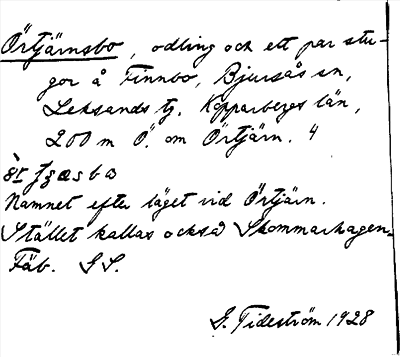 Örtjärnsbo, odling och ett par stu-
gor å Finnbo, Bjursås sn,
Leksands tg. Kopparbergs län,
200 m Ö. om Örtjärn. 4
Namnet efter läget vid Örtjärn.
Stället kallas också Skommarhagen.
Fäb. SS.
G. Tideström 1928